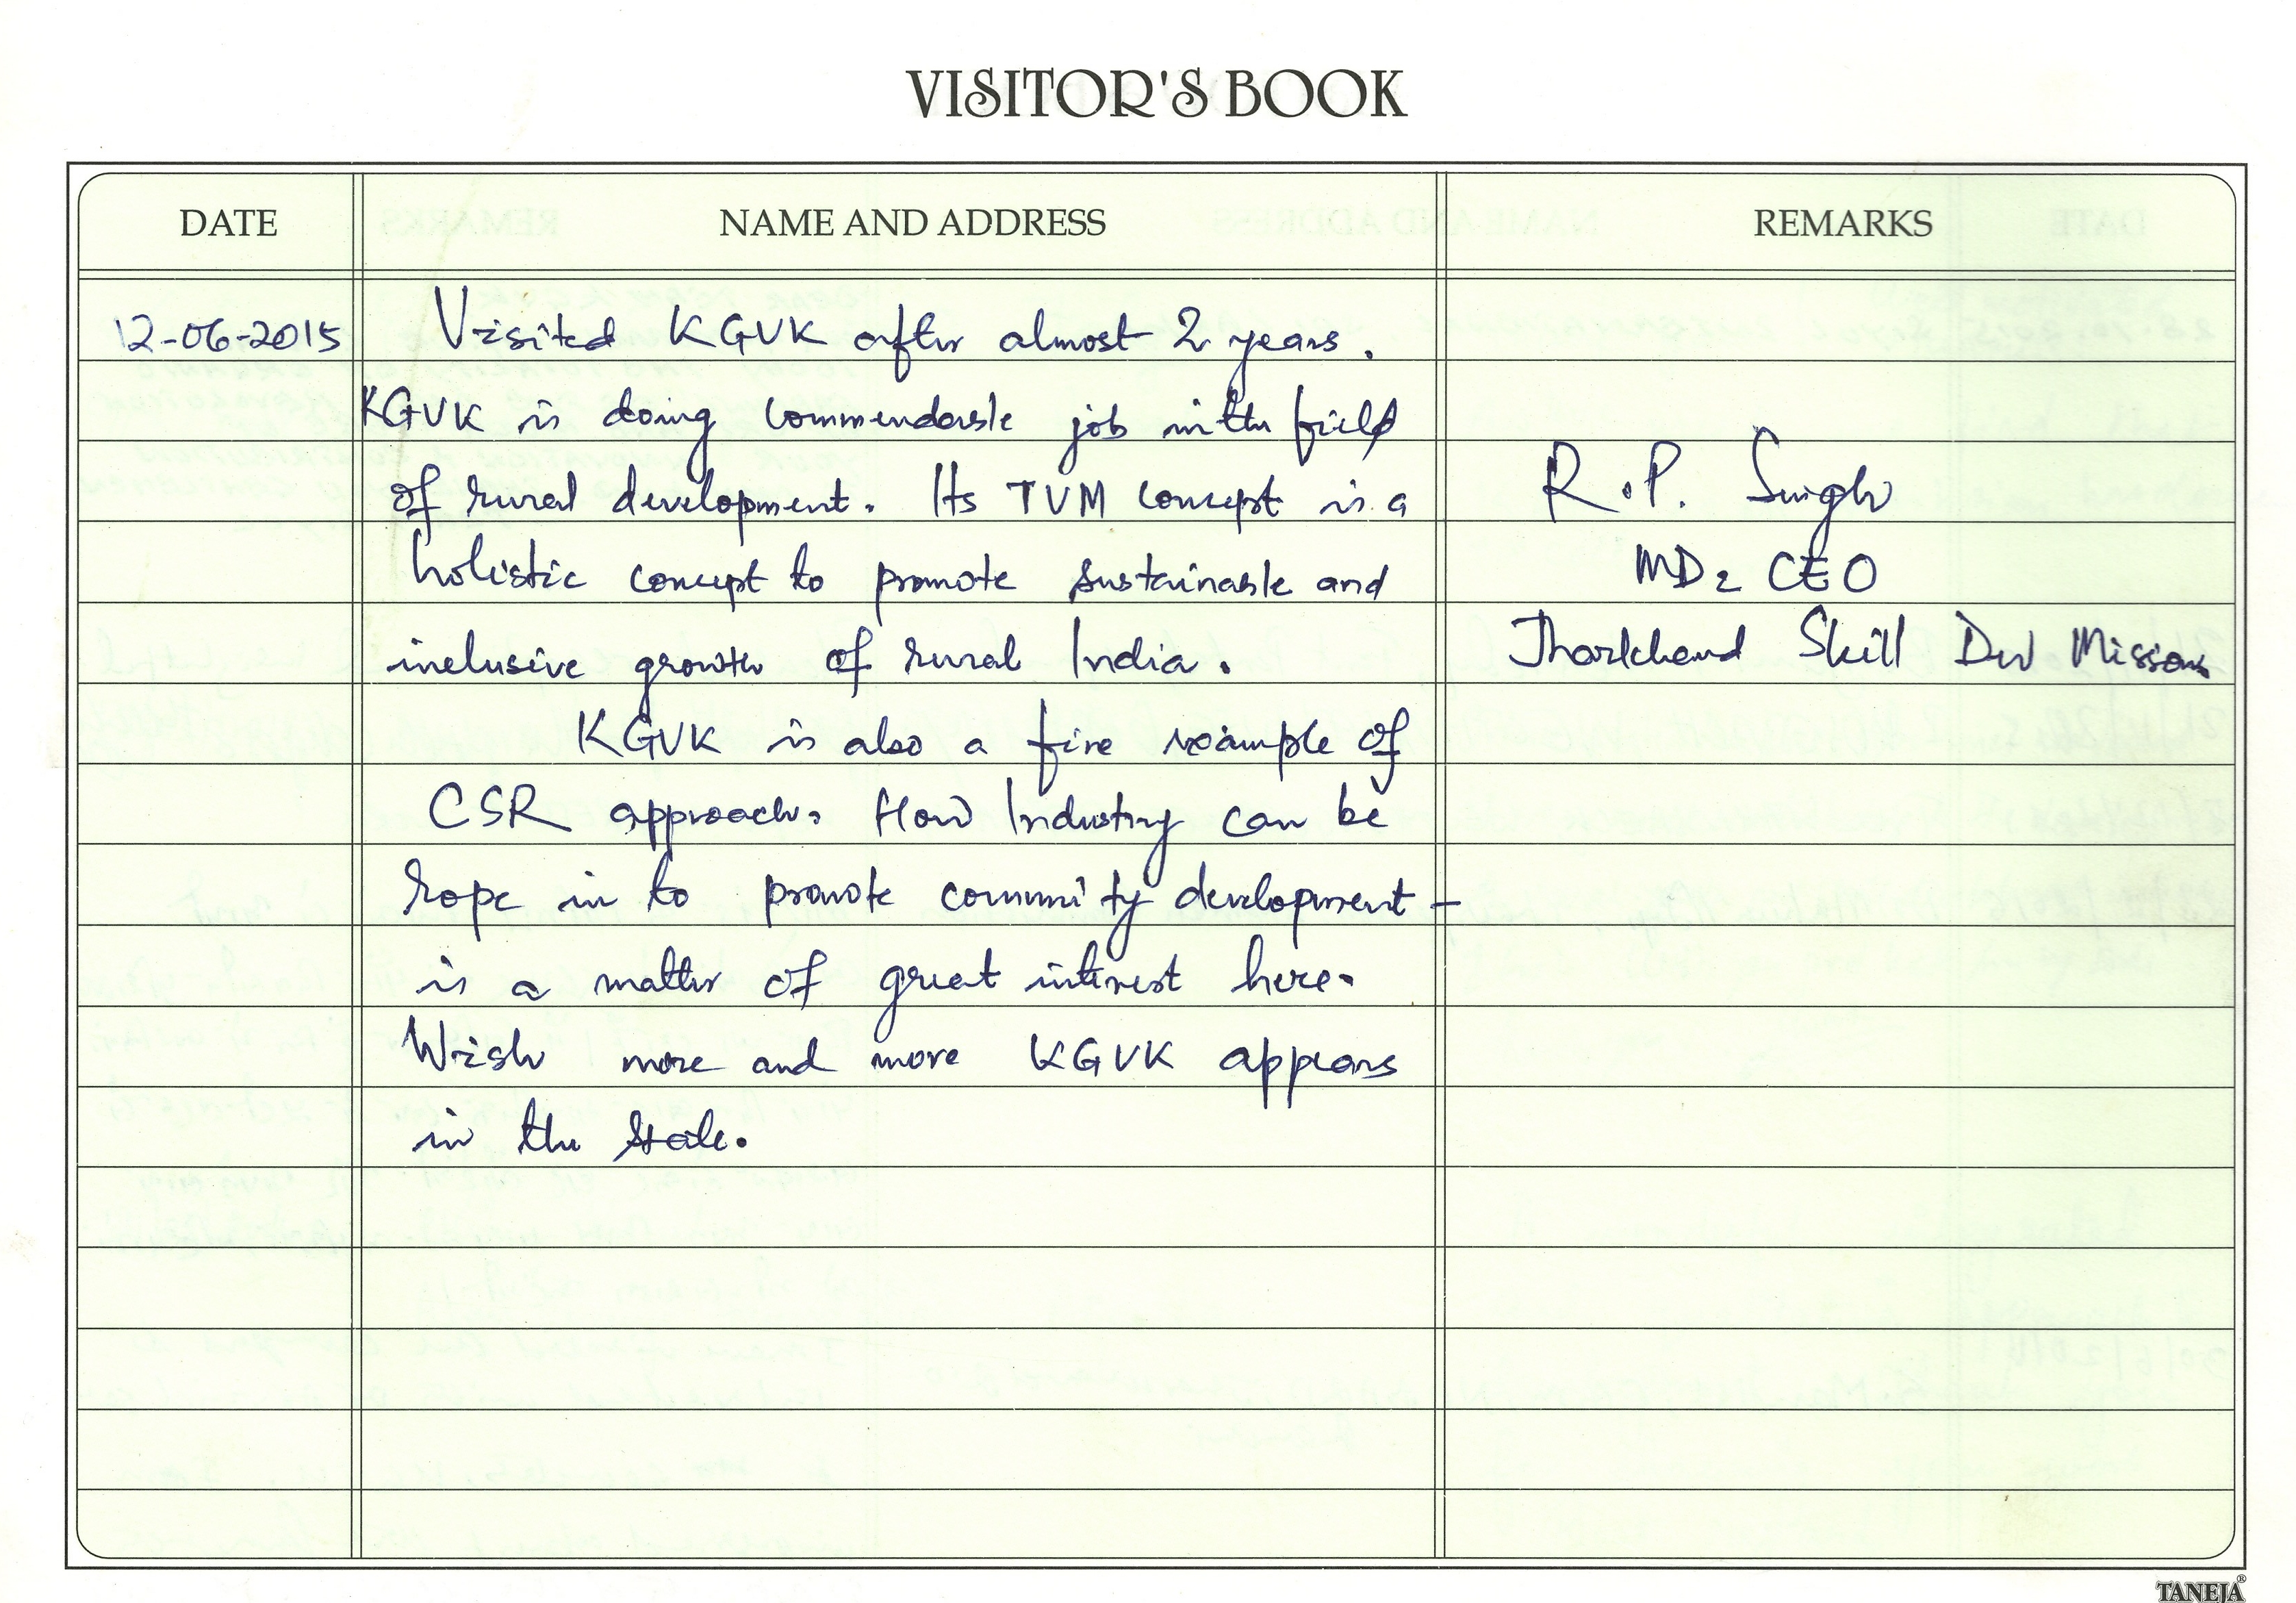 VISITOR'S BOOK
DATE NAME AND ADDRESS REMARKS
12-06-2015 Visited KGVK after almost 2 years.
KGVK is doing commendable job in the field
of rural development. Its TVM concept is a
holistic concept to promote sustainable and
inclusive growth of rural India.
KGVK is also a fine example of
CSR approach. How Industry can be
rope in to promote community development -
is a matter of great interest here.
Wish more and more KGVK appears
in the state.
R.P. Singh
MD & CEO
Jharkhand Skill Dev Mission
TANEJA®